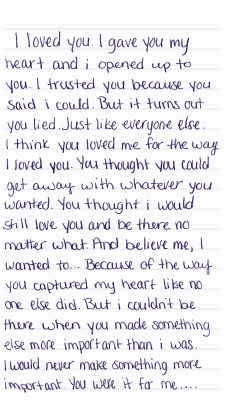 I loved you. I gave you my
heart and i opened up to
you. I trusted you because you
said i could. But it turns out
you lied. Just like everyone else.
I think you loved me for the way
I loved you. You thought you could
get away with whatever you
wanted. You thought i would
still love you and be there no
matter what. And believe me, I
wanted to... Because of the way
you captured my heart like no
one else did. But i couldn't be
there when you made something
else more important than i was.
I would never make something more
important. You were it for me....